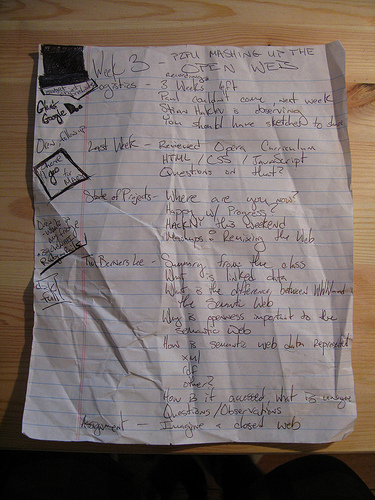 Week 3 - P2PU MASHING UP THE
OPEN WEB
Logistics - 3 Weeks left
Paul couldn't come, next week
observing
You should have sketched to date
Chat
Google
Last Week - Reviewed Opera Curriculum
HTML / CSS / JavaScript
Questions on that?
State of Projects - Where are you now?
Happy w/ Progress?
HackNY this weekend
Mashups & Remixing the Web
Tim Berners Lee - Summary from the class
What is linked data
What is the difference between WWW and
the Semantic Web
Why is openness important to the
semantic web
How is semantic web data represented
xml
rdf
other?
How is it accessed, what is unique
Questions/Observations
Assignment - Imagine a closed web